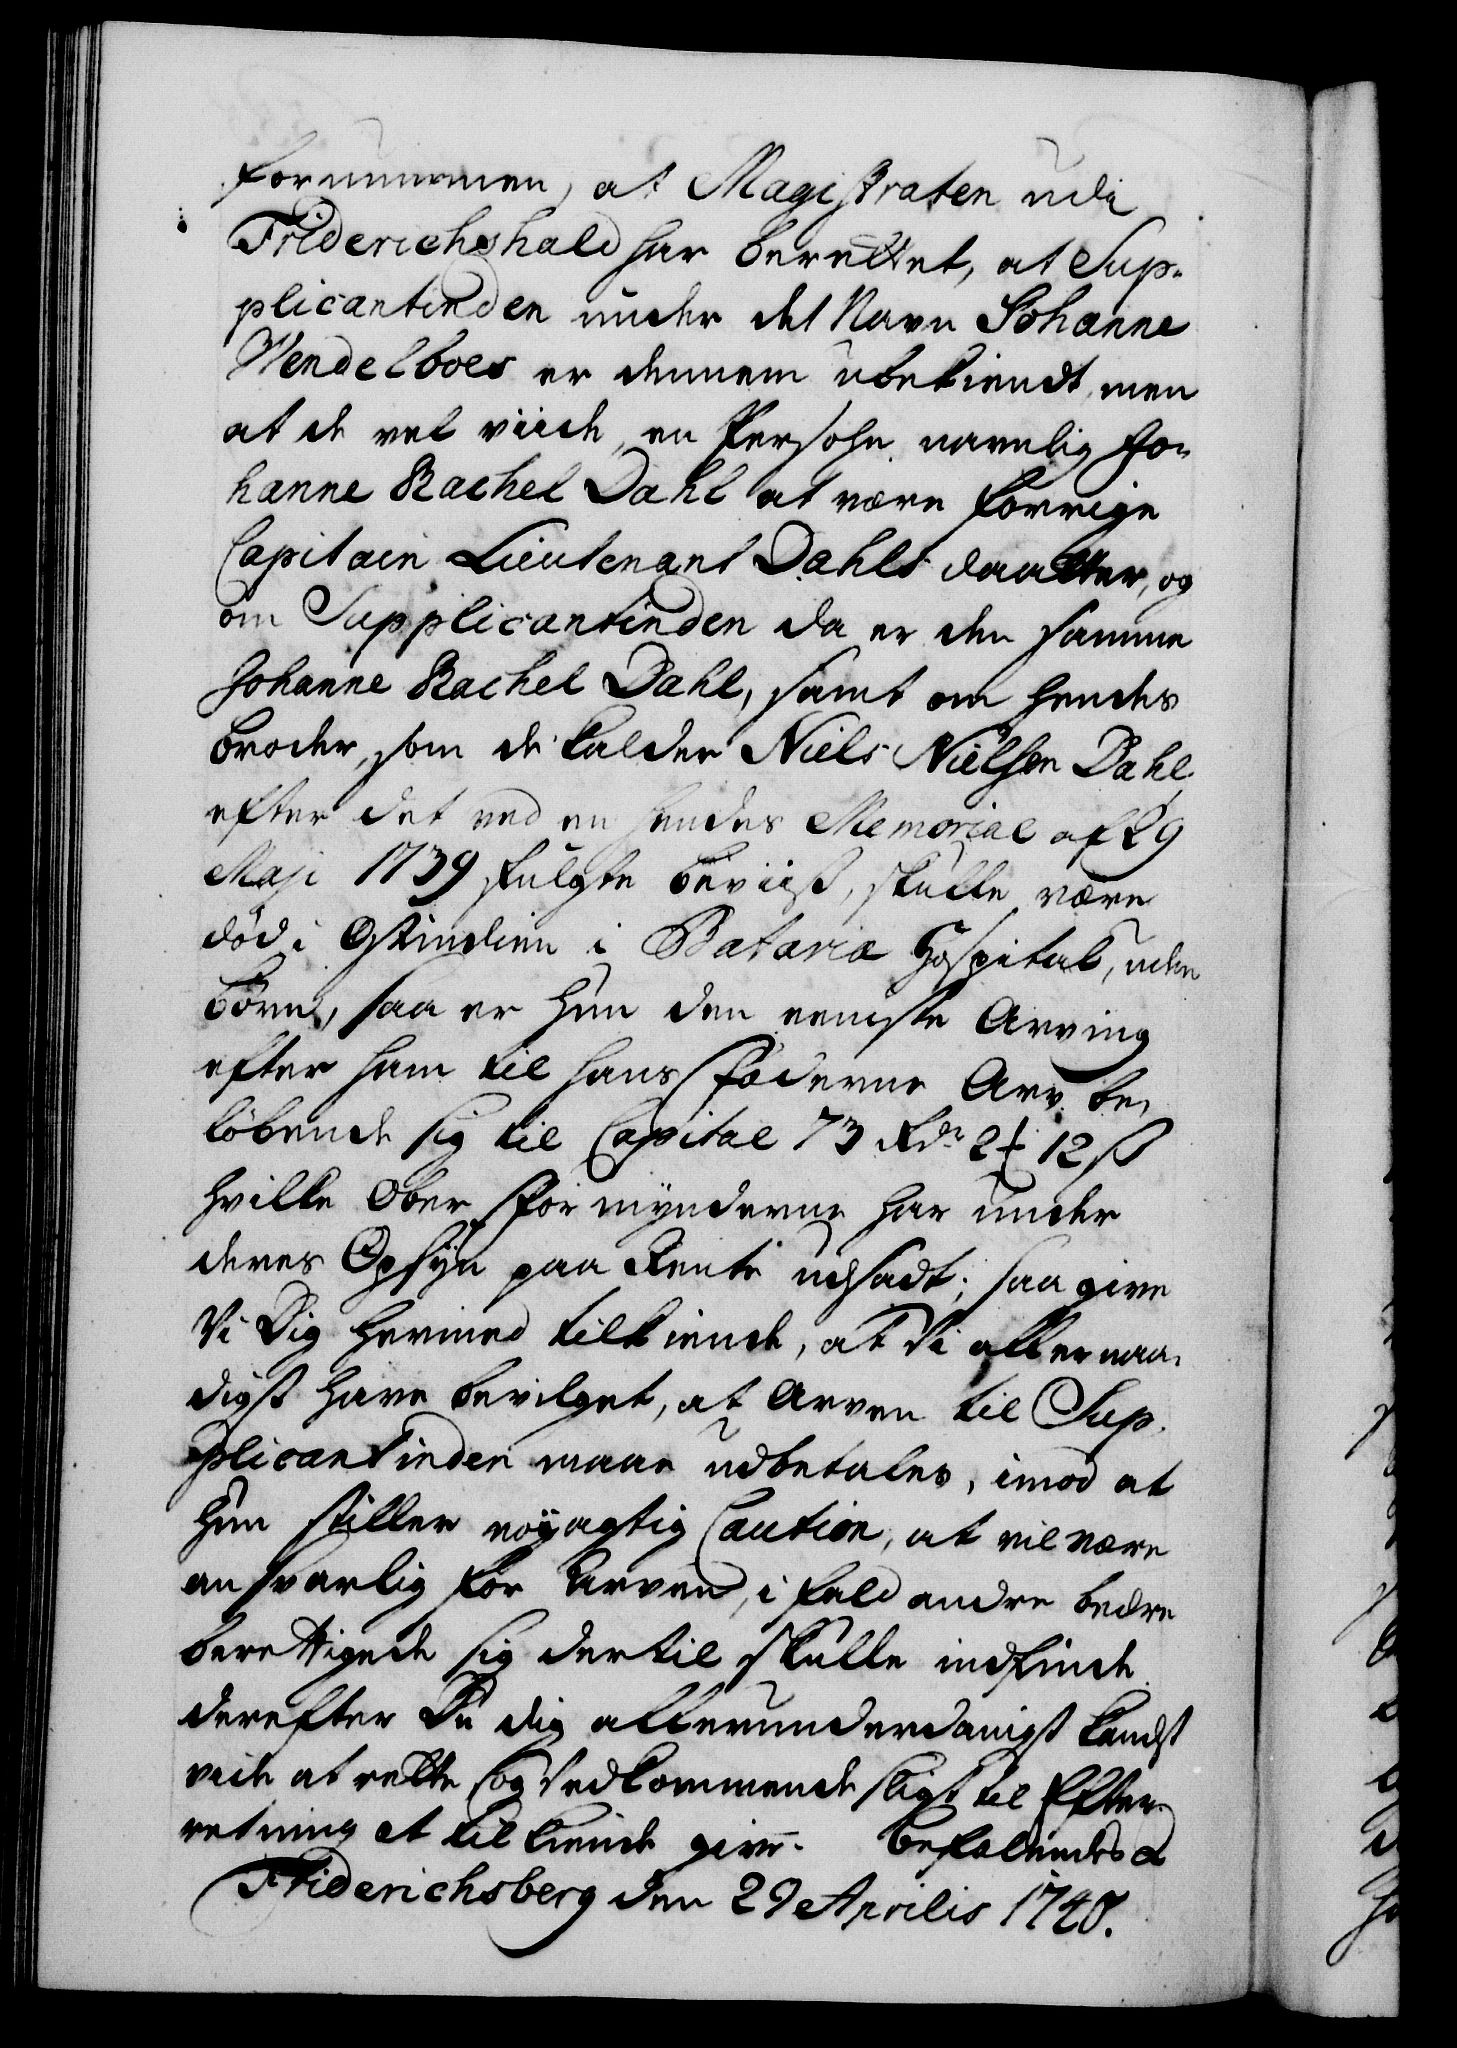 fornummen, at Magistraten udi
Friderichshald har berettet, at Sup-
plicantinden under det Navn Johanne
Wendelboes er dennem ubekiendt, men
at de vel viide, en Persohn navnlig Jo-
hanne Rachel Dahl at være forrige
Capitain Lieutenant Dahls daatter, og
om Supplicantinden da er den samme
Johanne Rachel Dahl, samt om hendes
broder, som de kalder Niels Nielsen Dahl,
efter det ved en hendes Memorial af 29
Maji 1739 fulgte beviis, skulle være
død i Ostindien i Batavia Hospital, uden
børn, saa er hun den eeneste Arving
efter ham til hans Fæderne Arv be-
løbende sig til Capital 73 Rdr 2 12 ß
hvilke Ober Formynderne har under
deres Opsyn paa Rente udsadt; saa give
Vi Dig hermed tilkiende, at Vi allernaa-
digst have bevilget, at Arven til Sup-
plicantinden maae udbetales, imod at
hun stiller nøyagtig Caution, at vil være
ansvarlig for Arven, i fald andre bedre
berettigede sig dertil skulle indfinde
derefter Du dig allerunderdanigst kandst
vide at rette og Vedkommende sligt til Efter-
retning at tilkiende give. Befalendes
Friderichsberg den 29 Aprilis 1740.